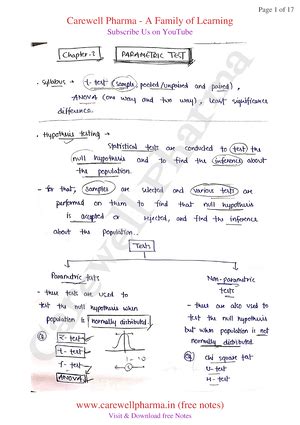 Page 1 of 17
Carewell Pharma - A Family of Learning
Subscribe Us on YouTube
Chapter-2 PARAMETRIC TEST
• syllabus → t-test (sample, pooled/unpaired and paired),
ANOVA (one way and two way), least significance
difference.
• Hypothesis testing →
Statistical tests are conducted to test the
null hypothesis and to find the inference about
the population.
- for that, samples are selected and various tests are
performed on them to find that null hypothesis
is accepted or rejected, and find the inference
about the population..
Tests
Parametric tests
- these tests are used to
test the null hypothesis when
population is normally distributed
z-test
t-test
f-test
ANOVA
Non-parametric
tests
- these are also used to
test the null hypothesis
but when population is not
normally distributed.
Chi square test
U-test
H-test
Carewell Pharma
www.carewellpharma.in (free notes)
Visit & Download free Notes